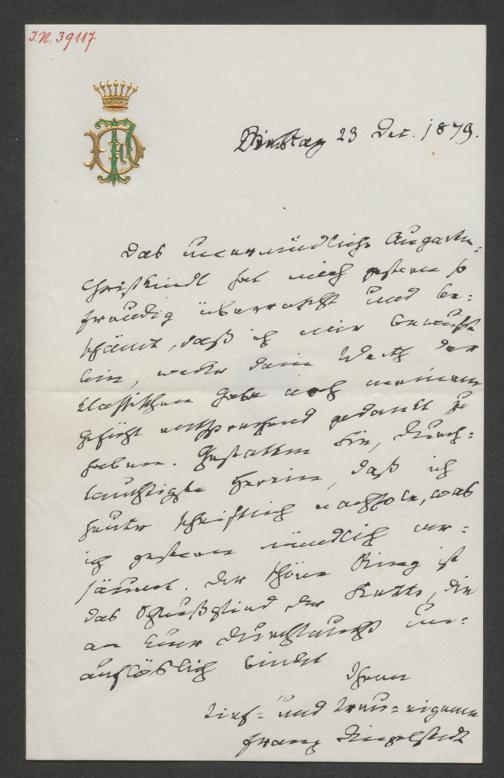 I.N. 39117
Dinstag 23 Dec. 1879.
Das unermüdliche Augarten-
Christkindl hat mich gestern so
freudig überrascht und be-
schämt, daß ich mir bewußt
bin, weder dem Werth der
klassischen Gabe noch meinem
Gefühl entsprechend gedankt zu
haben. Gestatten Sie, Durch-
lauchtigste Herrin, daß ich
heute schriftlich nachhole, was
ich gestern mündlich ver-
säumt. Der schöne Ring ist
das Schlußglied der Kette, die
an Eure Durchlaucht un-
auflöslich bindet
Ihren
tief- und treu-eigenen
Franz Dingelstedt